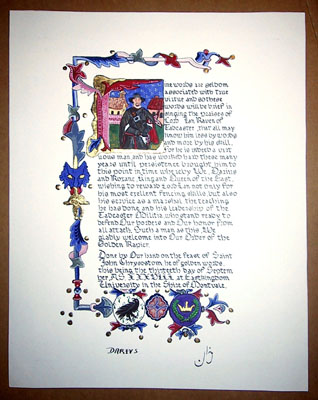 ine words are seldom
associated with true
virtue and so these
words will be brief in
singing the praises of
Lord Ian Raven of
Tadcaster, that all may
know him less by words
and more by his skill.
For he is indeed a virt
uous man and has worked hard these many
years until persistence brought him to
this point in time why lcky We, Darius
and Roxane King and Queen of the East,
wishing to reward Lord Ian not only for
his most excellent fencing skills, but also
his service as a marshal, the teaching
he has done and his leadership of the
Tadcaster Militia who stand ready to
defend Our borders and Our honor from
all attack. Such a man as this We
gladly welcome into Our Order of the
Golden Rapier.
Done by Our hand on the feast of Saint
John Chrysostom he of golden words
this being the thirteenth day of Septem
ber, AS XXXVIII, at East Kingdom
University in the Shire of Montvale.
DARIVS